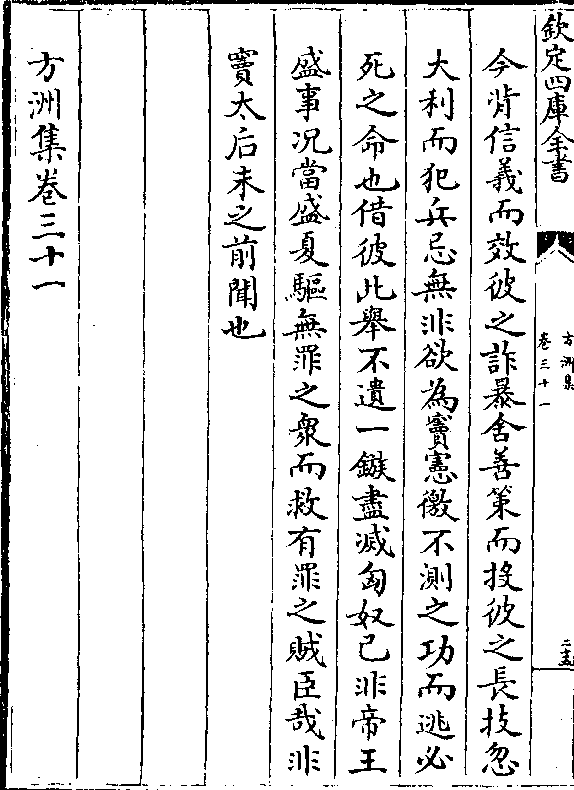 欽定四庫全書
方洲集
卷三十一
二十五
今背信義而效彼之詐暴舍善策而投彼之長技忽
大利而犯兵忌無非欲為竇憲徼不測之功而逃必
死之命也借彼此舉不遺一鏃盡滅匈奴已非帝王
盛事况當盛夏驅無罪之衆而救有罪之賊臣哉非
竇太后未之前聞也
方洲集卷三十一